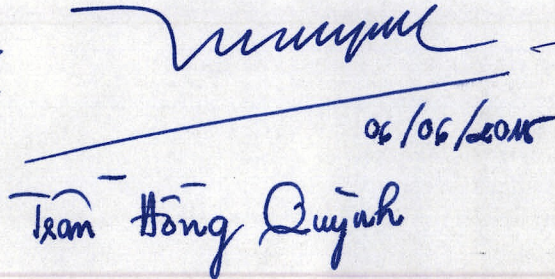 06/06/2015
Trần Hồng Quỳnh